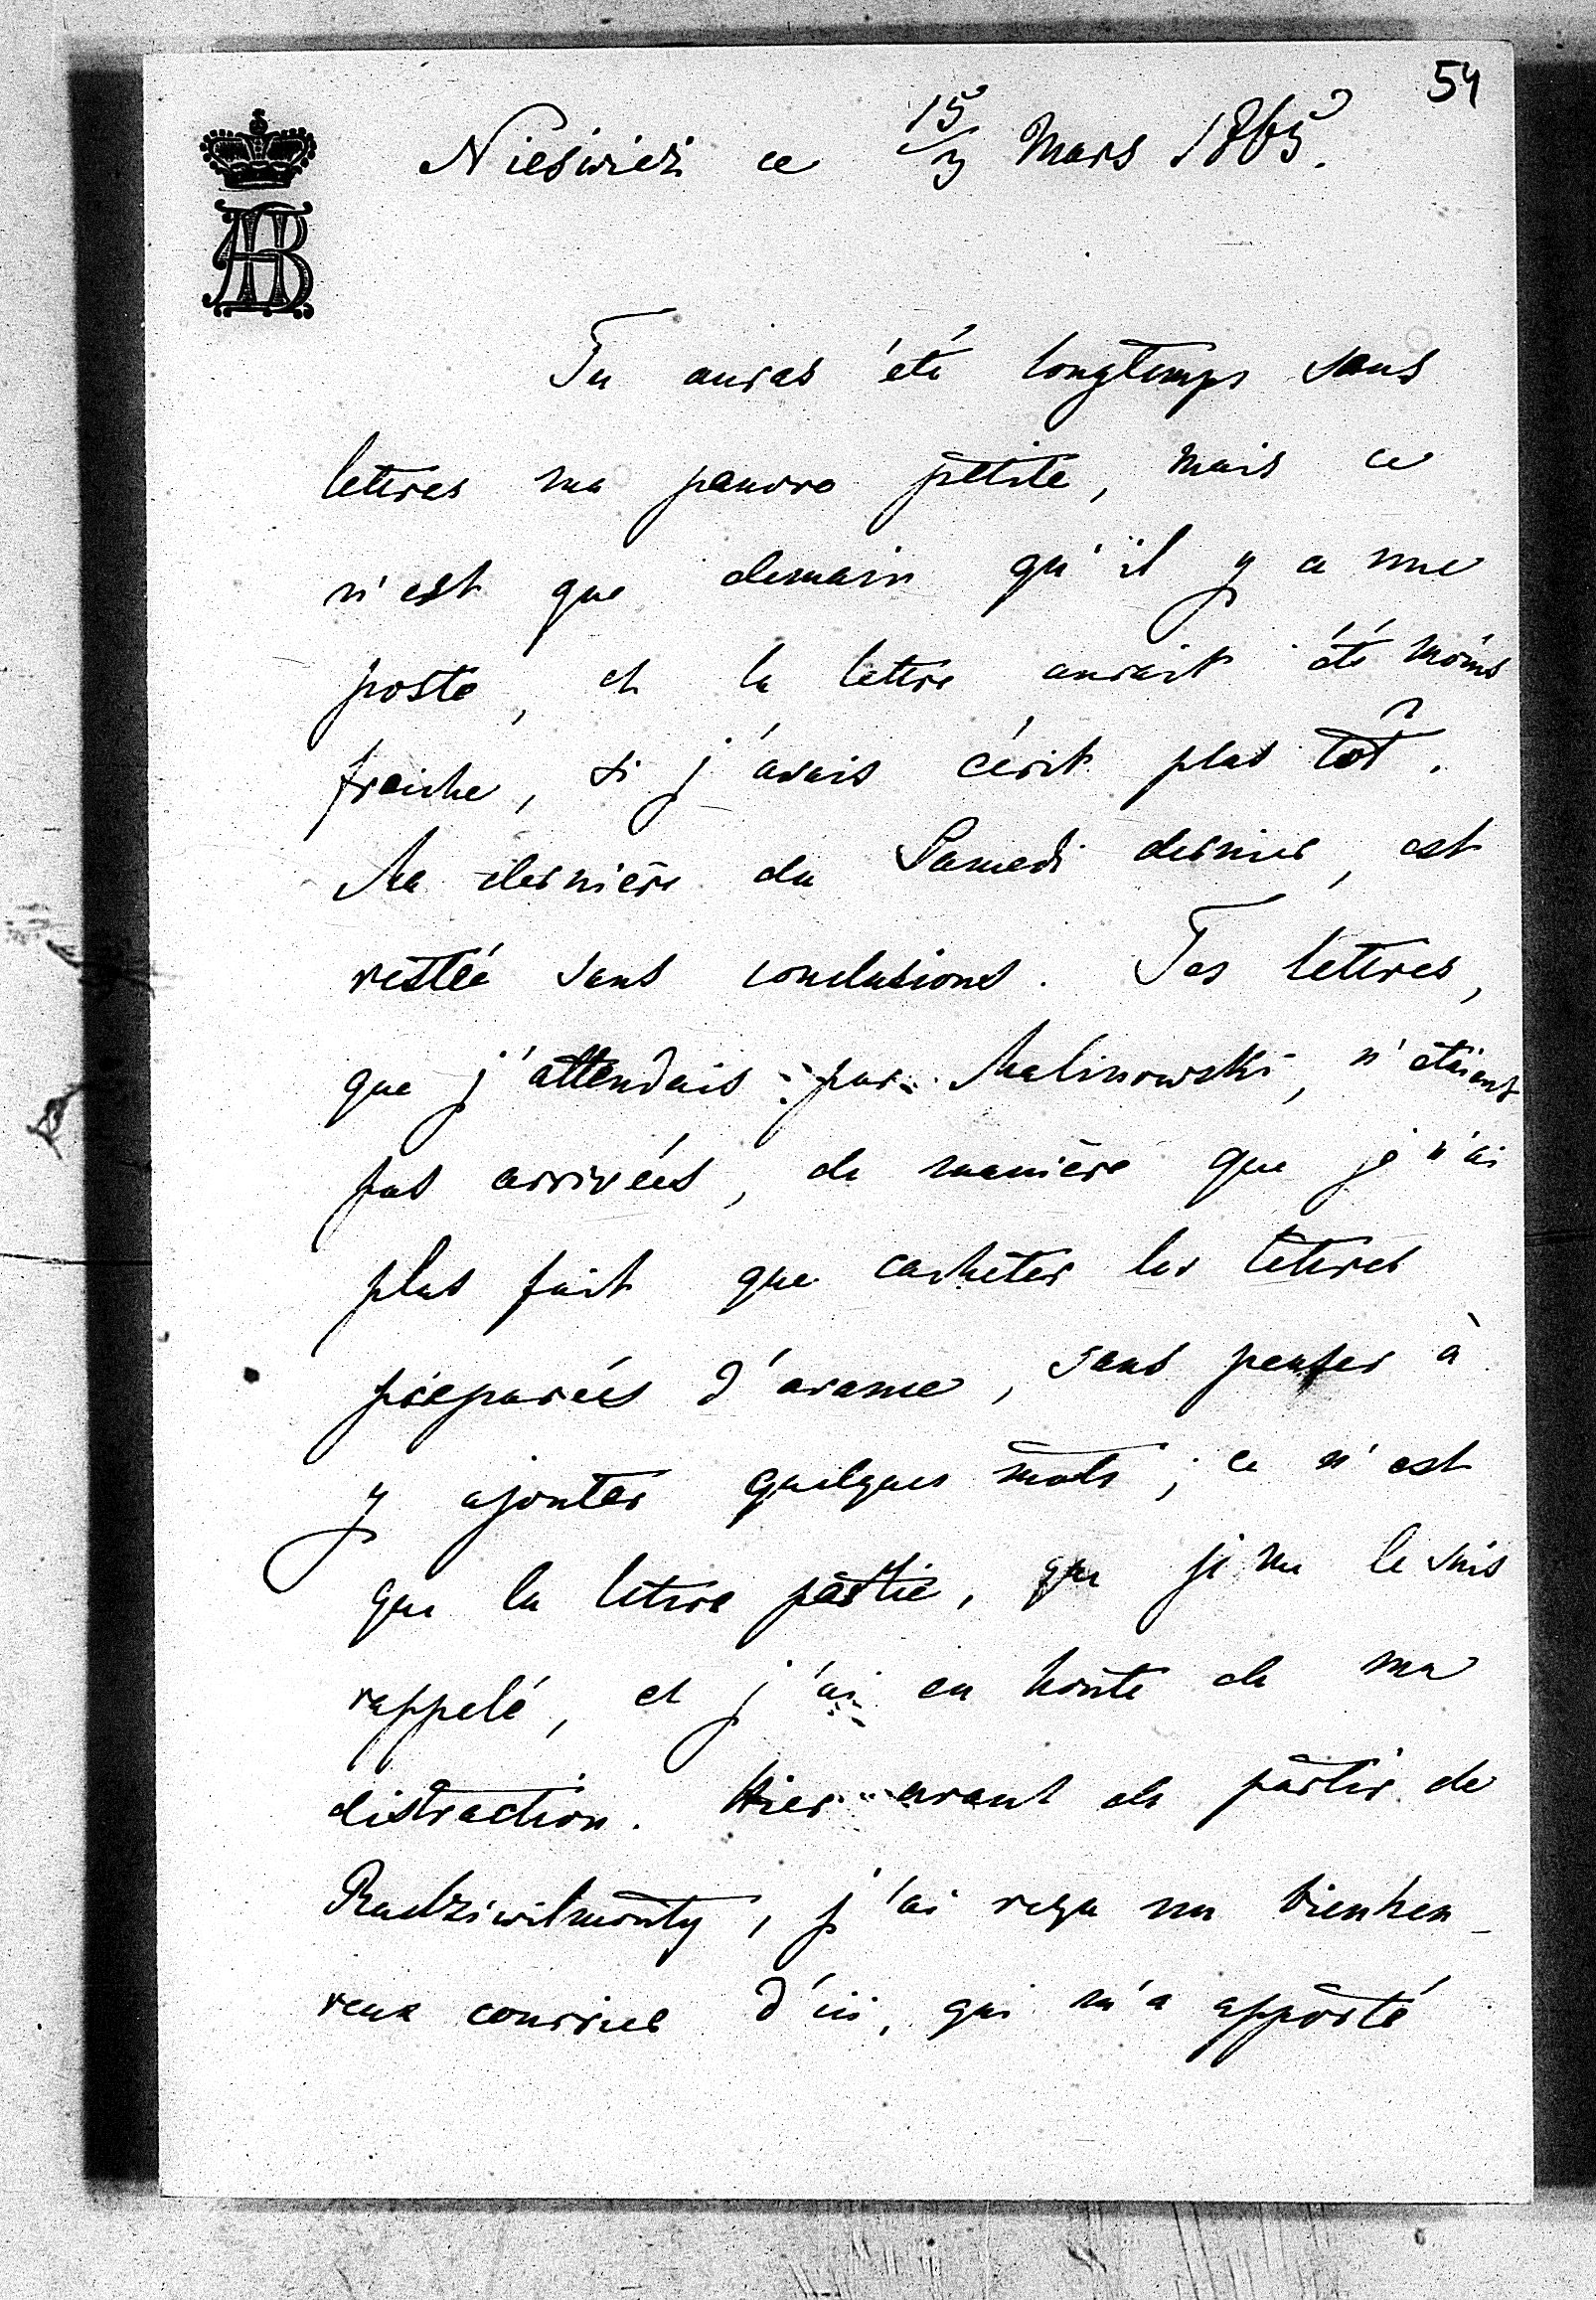 54
Nieśwież ce 15/3 Mars 1865.
AB
Tu auras été longtemps sans
lettres ma pauvre petite, mais ce
n'est que demain qu'il y a une
poste, et la lettre aurait été moins
fraiche, si j'avais écrit plus tôt.
Ma dernière du Samedi dernier, est
restée sans conclusions. Tes lettres,
que j'attendais par Malinowski, n'étaient
pas arrivées, de manière que je n'ai
plus fait que cacheter les lettres
préparées d'avance, sans penser à
y ajouter quelques mots ; ce n'est
que la lettre partie, que je me le suis
rappelé, et j'ai eu honte de ma
distraction. Hier avant de partir de
Radziwilmonty, j'ai reçu un bienheu-
reux courrier d'ici, qui m'a apporté